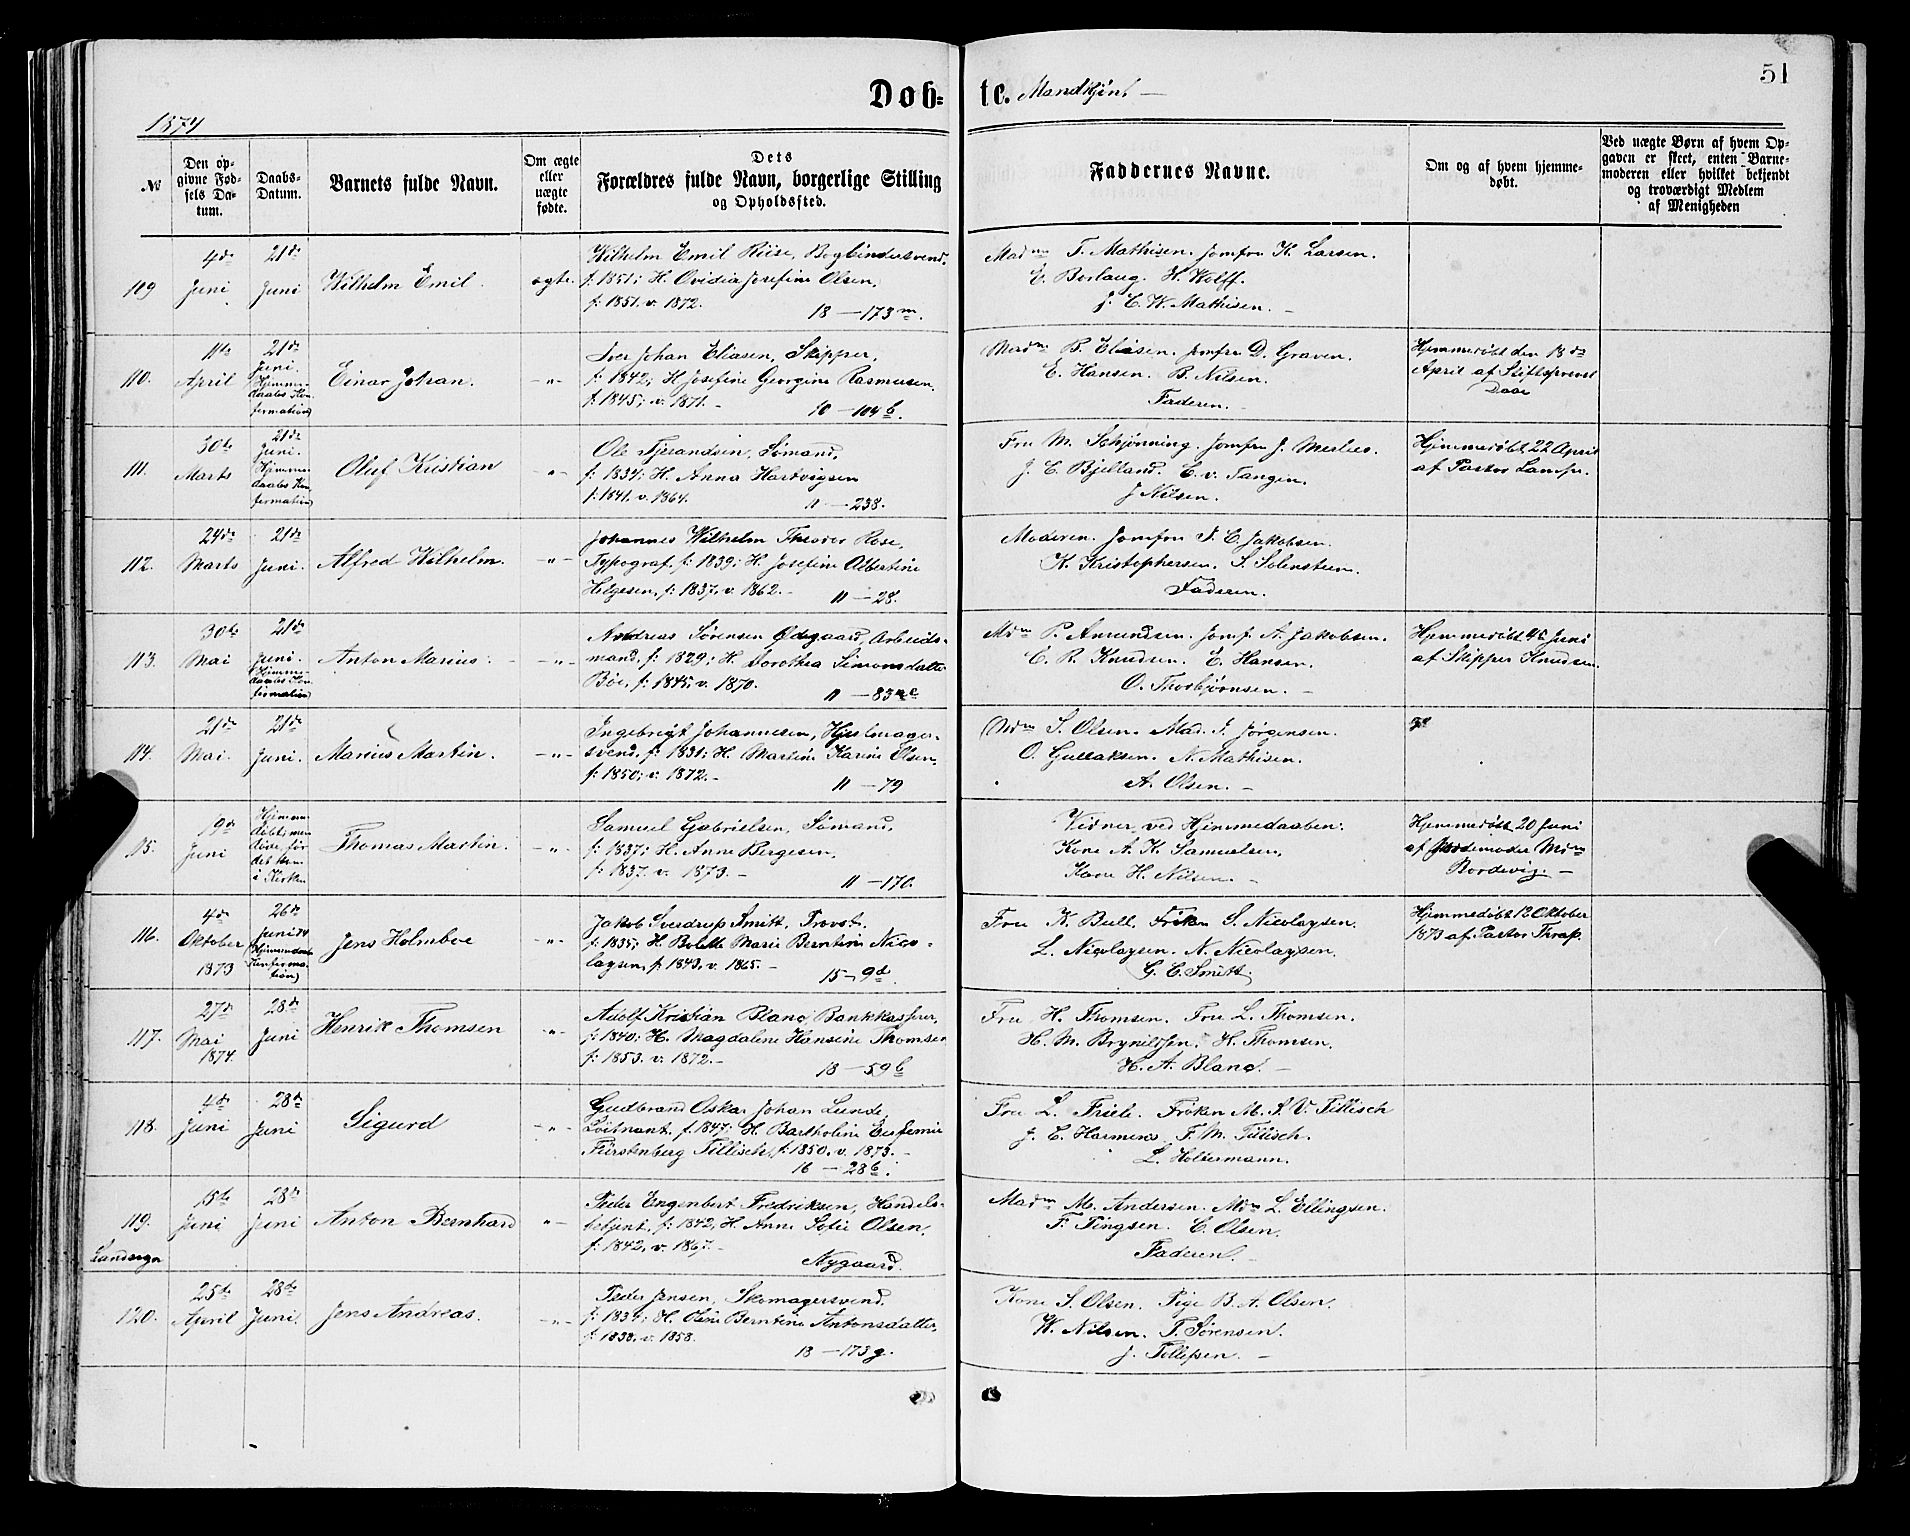 51
Døb= te. Mandkjøn.
1874
№
Den op-
givne Fød-
sels Da-
tum.
Daabs-
Datum.
Barnets fulde Navn.
Om ægte
eller
uægte
fødte.
Dets
Forældres fulde Navn, borgerlige Stilling
og Opholdssted.
Faddernes Navne.
Om og af hvem hjemme-
døbt.
Ved uægte Børn af hvem Op-
gaven er skeet, enten Barne-
moderen eller hvilket bekjendt
og troværdigt Medlem
af Menigheden
109
4de
Juni
21de
Juni
Wilhelm Emil.
ægte.
Wilhelm Emil Riise, Bogbindersvend,
f: 1851; H. Ovidia Josefine Olsen,
f: 1851. v. 1872.
18 — 173 m.
Madm T. Mathisen. Jomfru K. Larsen.
E. Berlaug. H. Wolff.
J. C. W. Mathisen. —
110.
11te
April
21de
Juni.
(Hjemme-
daabs Kon-
firmation)
Einar Johan.
—"—
Iver Johan Eliasen, Skipper,
f: 1842; H. Josefine Georgine Rasmusen,
f: 1845; v. 1871. —
10 — 104 b.
Madm B. Eliasen. Jomfru D. Graven.
E. Hansen. B. Nilsen.
Faderen.
Hjemmedøbt den 13de
April af Stiftsprovst
Daae
111.
30te
Marts
21de
Juni.
(Hjemme-
daabs Kon-
firmation)
Oluf Kristian
—"—
Ole Tjerandsen, Sømand,
f: 1834; H. Anna Hartvigsen
f: 1841. v. 1864.
11 — 238.
Fru M. Schjønning. Jomfru J. Meslies.
J. C. Bjelland. E. v. Tangen.
J. Nilsen.
Hjemmedøbt 22 April
af Pastor Lampe.
112.
24de
Marts
21de
Juni.
Alfred Wilhelm.
—"—
Johannes Wilhelm Theodor Rose,
Typograf, f: 1839; H. Josefine Albertine
Helgesen, f: 1837, v. 1862. —
11 — 28.
Moderen. Jomfru I. E. Jakobsen.
K. Kristophersen. S. Solensteen.
Faderen.
113.
30te
Mai
21de
Juni.
(Hjemme-
daabs Kon-
firmation)
Anton Marius.
—"—
Andreas Sørensen Ødegaard, Arbeids-
mand, f: 1829; H. Dorothea Simonsdatter
Bøe, f: 1845, v. 1870.
11 — 83
Mdm P. Amundsen. Jomf. A. Jakobsen.
C. R. Knudsen. E. Hansen.
O. Thorbjørnsen. —
Hjemmedøbt 4de Juni
af Skipper Knudsen.
114.
21de
Mai.
21de
Juni.
Marius Martin.
—"—
Ingebrigt Johannesen, Hjulmager-
svend, f: 1831; H. Martine Karine Olsen,
f: 1850; v. 1872. —
11 — 79
Mdm S. Olsen. Mad. I. Jørgensen.
O. Gullaksen. N. Mathisen.
A. Olsen. —
115.
19de
Juni
Hjemme-
døbt, men
døde, før
det kom
i Kirken
Thomas Martin.
—"—
Samuel Gabrielsen, Sømand,
f: 1837; H. Anne Bergesen,
f: 1837, v. 1873. —
11 — 170.
Vidner ved Hjemmedaaben:
Kone A. K. Samuelsen,
Kone H. Nilsen. —
Hjemmedøbt 20 Juni
af Jordemoder Mdm
Bordevig. —
116.
4de
Oktober
1873
26de
Juni
(Hjemmedaabs
Konfirma-
tion)
Jens Holmboe
—"—
Jakob Sverdrup Smitt, Provst,
f: 1835; H. Bolette Marie Berntine Nico-
laysen, f: 1843. v. 1865. —
15 — 9 d.
Fru K. Bull. Frøken S. Nicolaysen.
L. Nicolaysen. N. Nicolaysen.
G. C. Smitt.
Hjemmedøbt 12 Oktober
1873 af Pastor Thrap.
117.
27de
Mai
1874.
28de
Juni
Henrik Thomsen
—"—
Adolf Kristian Blanc, Bankkasserer,
f: 1840; H. Magdalene Hansine Thomsen
f: 1853. v. 1872. —
18 — 59 b
Fru H. Thomsen. Fru L. Thomsen.
H. M. Brynildsen. H. Thomsen.
H. A. Blanc. —
118.
4de
Juni
28de
Juni
Sigurd
—"—
Gudbrand Oskar Johan Lunde,
Løitnant, f. 1847; H. Bartholine Eufemia
Fürstenberg Tillisch, f: 1850. v. 1873. —
16 — 28 b.
Fru L. Friele. Frøken M. S. V. Tillisch
J. C. Harmens. F. M. Tillisch.
L. Holtermann.
119.
Landsogn
15de
Juni
28de
Juni
Anton Bernhard
"—
Peder Engenbert Fredriksen, Handels-
betjent, f: 1842; H. Anne Sofie Olsen,
f: 1842, v. 1867. —
Nygaard.
Madm M. Andersen. Mdm L. Ellingsen.
F. Pingsen. C. Olsen.
Faderen. —
120.
25de
April
28de
Juni.
Jens Andreas.
—"—
Peder Jensen, Skomagersvend.
f: 1834; H. Oline Berntine Antonsdatter,
f: 1838. v. 1858.
18 — 173 g.
Kone S. Olsen. Pige B. A. Olsen.
W. Nilsen. T. Sørensen.
J. Tollefsen. —